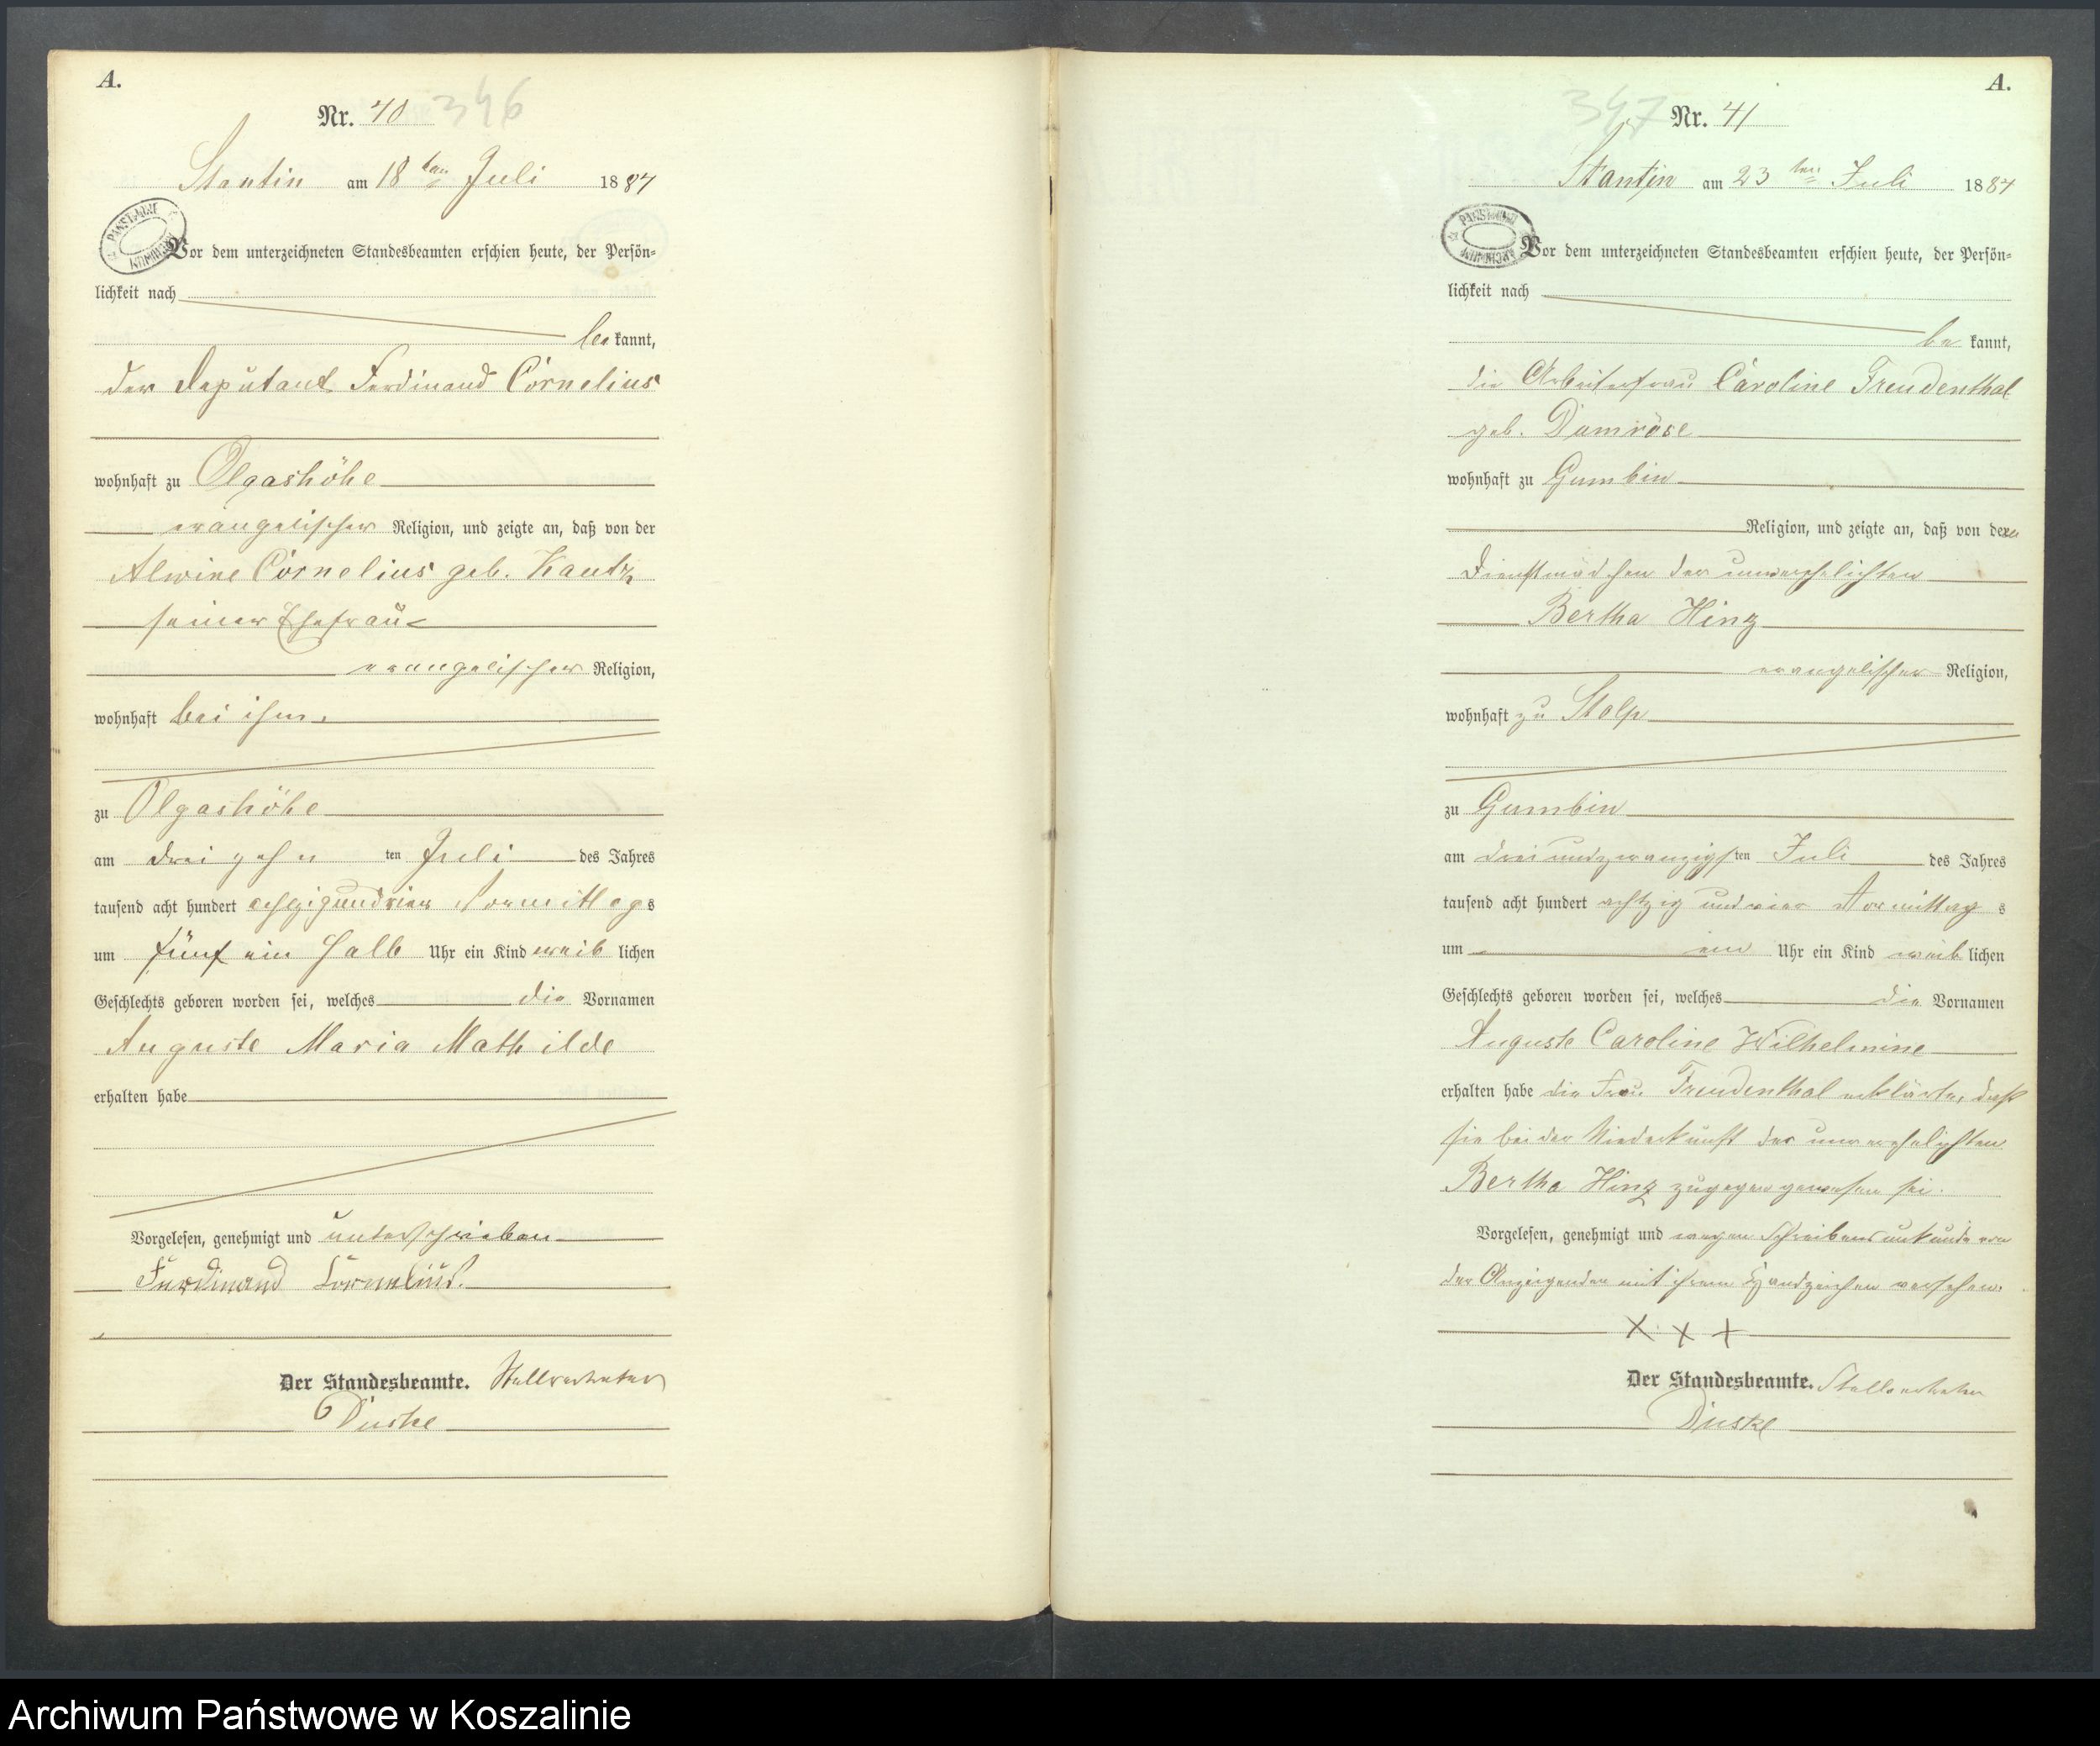 A.
Nr. 40 346
Stantin am 18 ten Juli 1884
Vor dem unterzeichneten Standesbeamten erschien heute, der Persön=
lichkeit nach
be kannt,
der Deputant Ferdinand Cornelius
wohnhaft zu Olgashöhe
evangelischer Religion, und zeigte an, daß von der
Alwine Cornelius geb. Kautz
seiner Ehefrau
evangelischer Religion,
wohnhaft bei ihm
zu Olgashöhe
am dreizehn ten Juli des Jahres
tausend acht hundert achtzig und vier Vormittags
um fünf ein halb Uhr ein Kind weib lichen
Geschlechts geboren worden sei, welches die Vornamen
Auguste Maria Mathilde
erhalten habe
Vorgelesen, genehmigt und unterschrieben
Ferdinand Cornelius.
Der Standesbeamte. Stellvertreter
Duske
A.
347 Nr. 41
Stantin am 23 ten Juli 1884
Vor dem unterzeichneten Standesbeamten erschien heute, der Persön=
lichkeit nach
be kannt,
die Arbeiterfrau Caroline Freudenthal
geb. Damröse
wohnhaft zu Gumbin
Religion, und zeigte an, daß von
Dienstmädchen der unverehelichten
Bertha Hinz
evangelischer Religion,
wohnhaft zu Stolp
zu Gumbin
am drei und zwanzigsten Juli des Jahres
tausend acht hundert achtzig und vier Vormittag s
um ein Uhr ein Kind weib lichen
Geschlechts geboren worden sei, welches die Vornamen
Auguste Caroline Wilhelmine
erhalten habe die Frau Freudenthal erklärte, daß
sie bei der Niederkunft der unverehelichten
Bertha Hinz zugegen gewesen sei.
Vorgelesen, genehmigt und wegen Schreibensunkunde von
der Anzeigenden mit ihrem Handzeichen versehen.
X X X
Der Standesbeamte. Stellvertreter
Duske
Archiwum Państwowe w Koszalinie